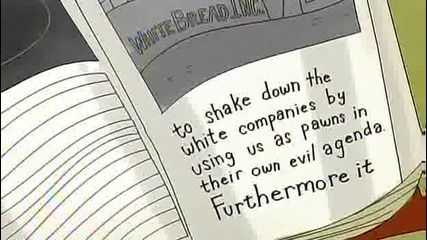 WHITE BREAD INC.
to shake down the
white companies by
using us as pawns in
their own evil agenda.
Furthermore it